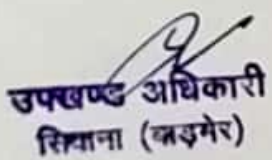 उपखण्ड अधिकारी
सिवाना (बाड़मेर)